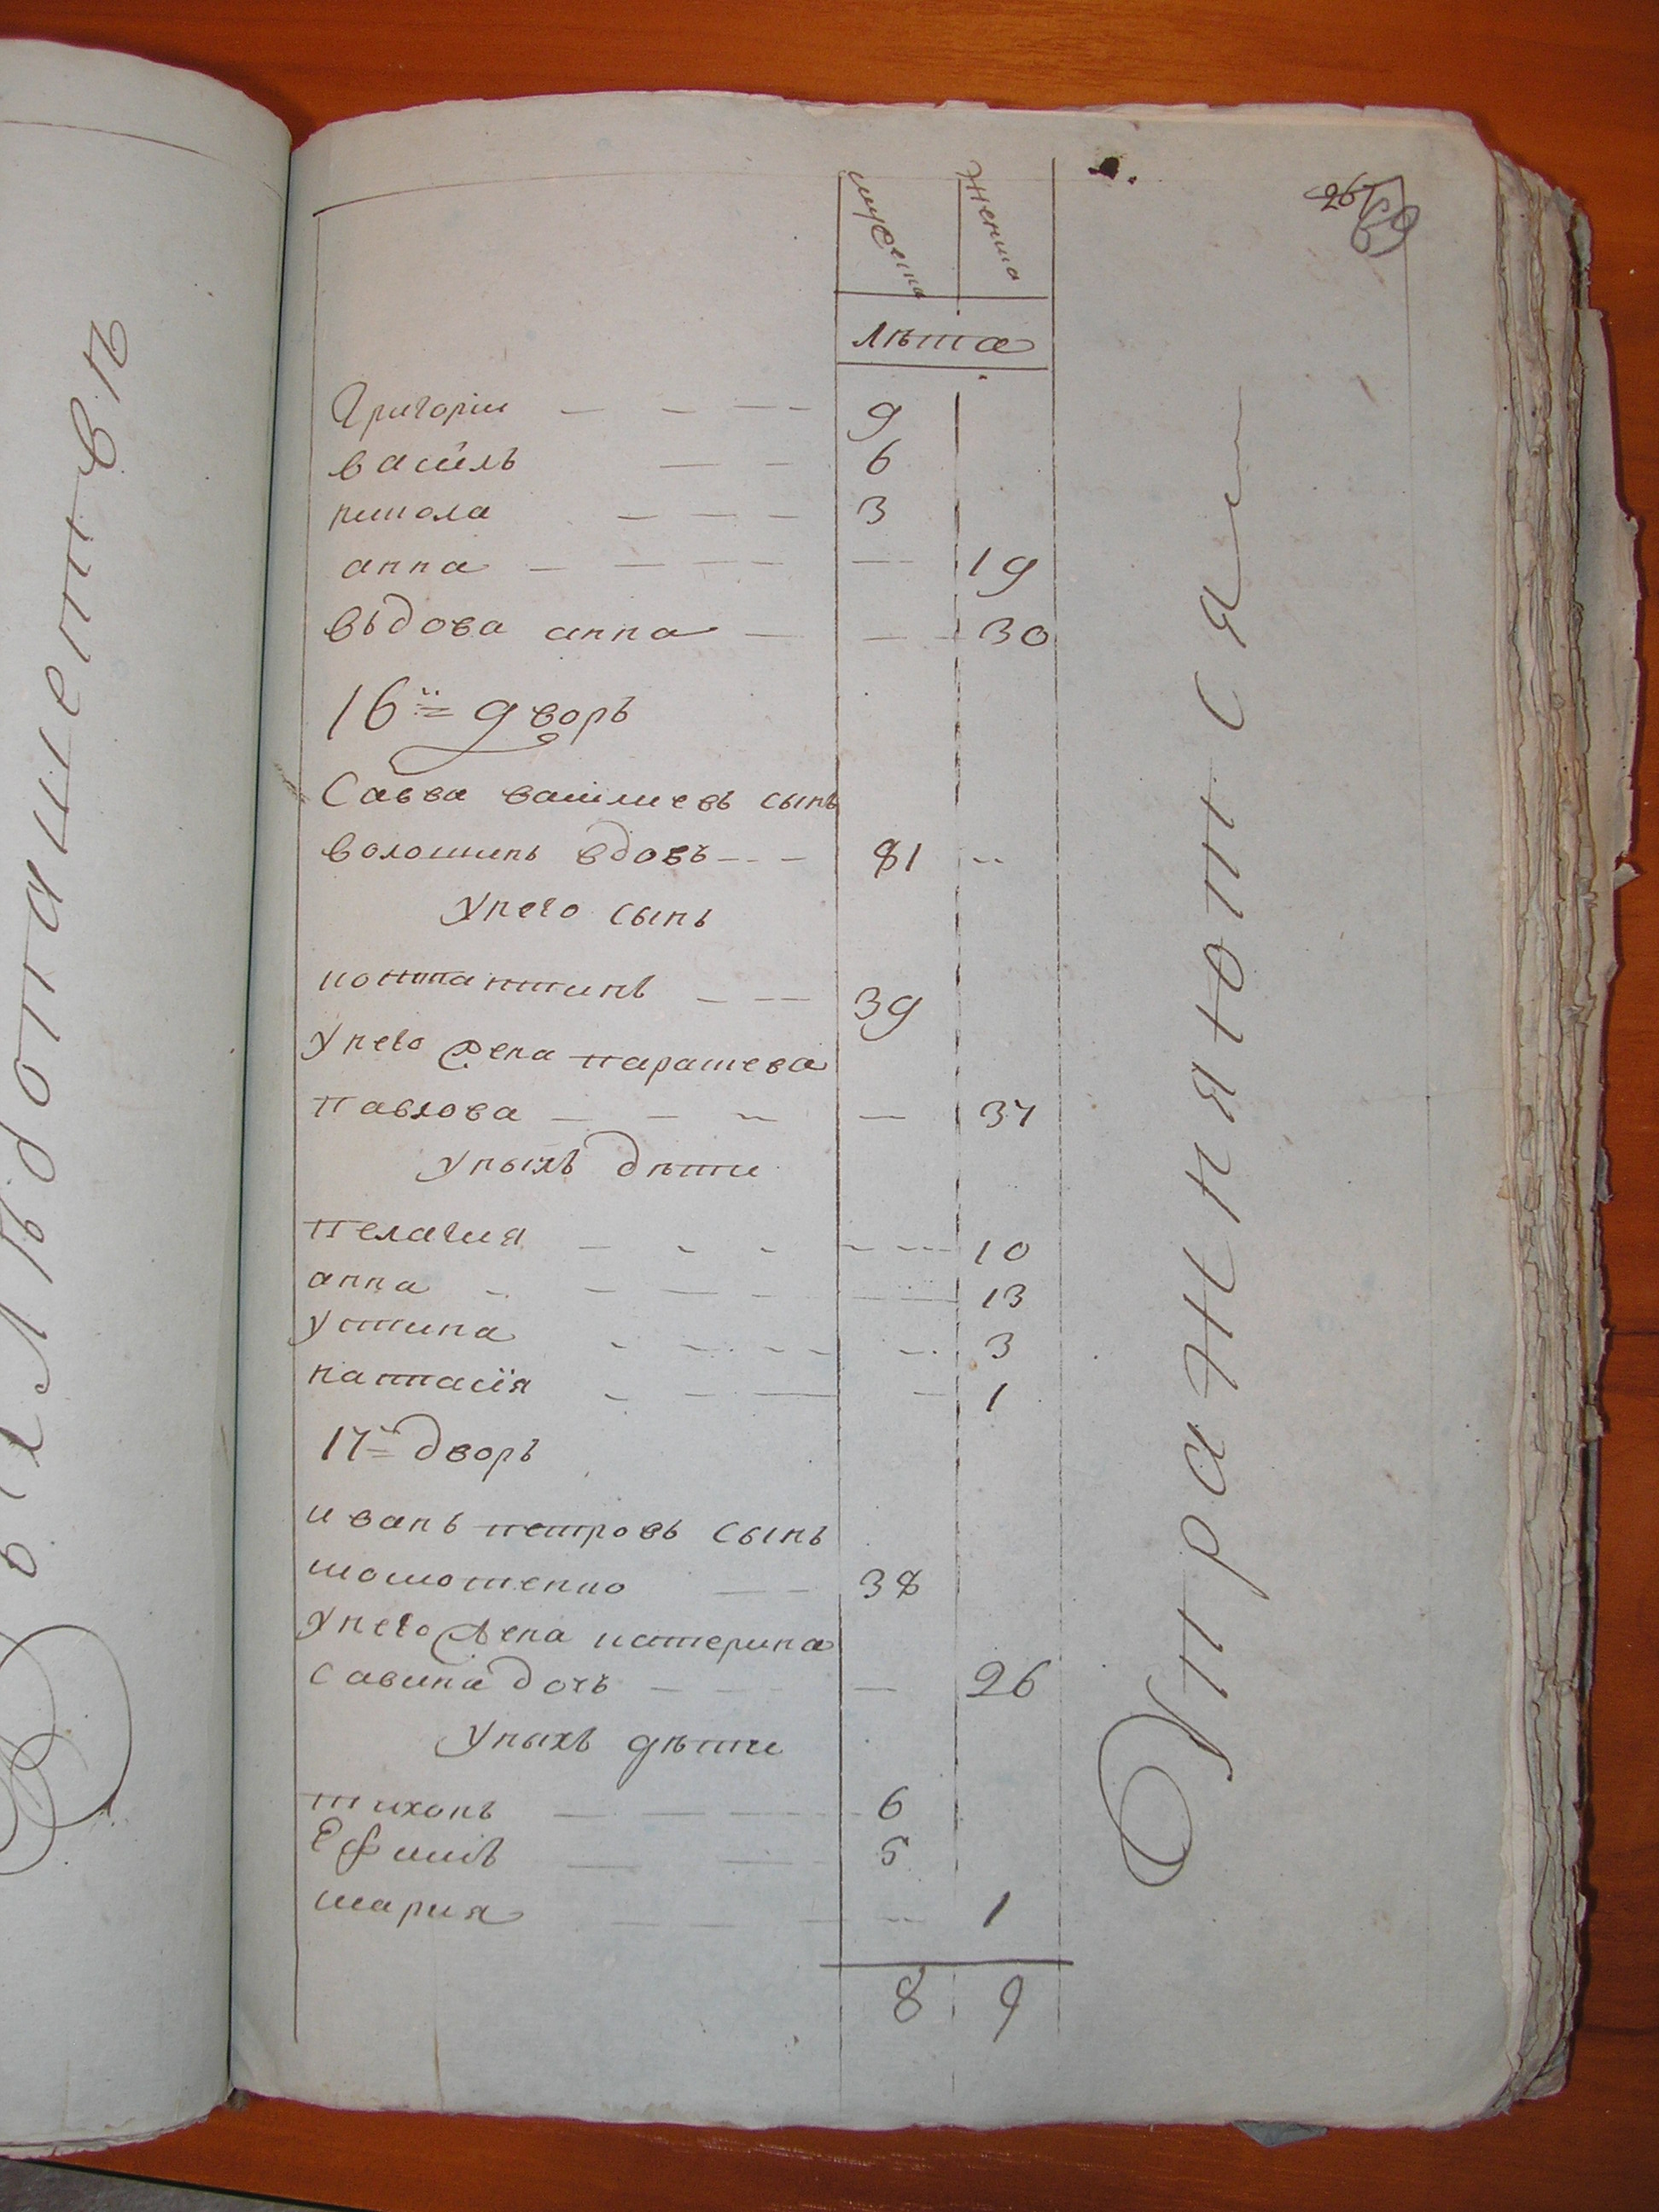 мужеска
женска
лѣта
Григоріи — — — 9
василь — — 6
никола — — — 3
анна — — — — — 19
вьдова анна — — 30
16й дворъ
Савва василиевъ сынъ
волошинъ вдовъ — — 81 —
У него сынъ
константинъ — — 39
У него жена парасцева
Павлова — — — — 37
У ныхъ дѣти
Пелагия — — — — — 10
анна — — — — — 13
Устина — — — — — 3
настасія — — — — 1
17й дворъ
иванъ петровъ сынъ
38
У него жена катерина
Савина дочь — — — 26
У ныхъ дѣти
тихонъ — — — 6
Ефимъ — — 5
мария — — — — 1
8 9
Упражняютися